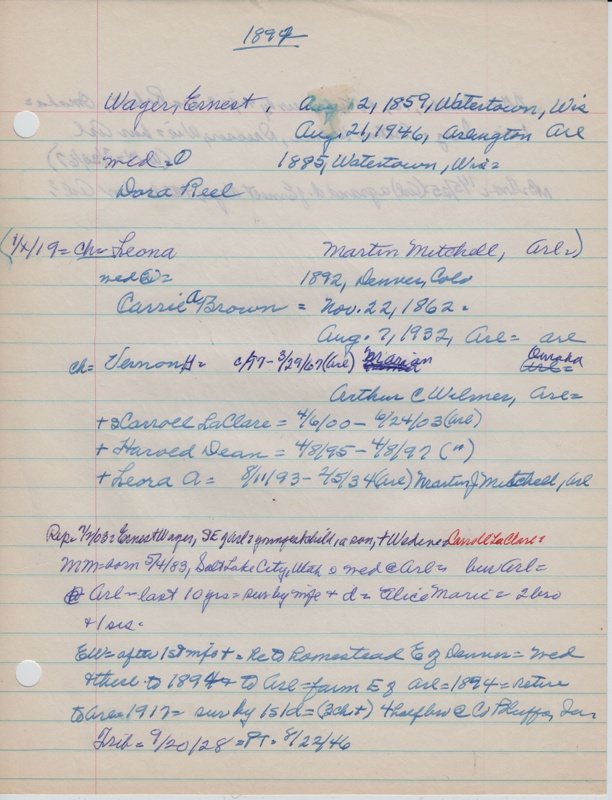 1894
Wager, Ernest, Aug. 12, 1859, Watertown, Wis
Aug. 21, 1946, Arlington Are
med = 1885, Watertown, Wis =
Dora Reel
(1/x/19 = ch = Leona Martin Mitchell, Are =)
med = 1892, Denver, Colo
Carrie A Brown = Nov. 22, 1862 =
Aug. 7, 1932, Are = are
ch = Vernon H = c/97 - 3/29/67 (are) Marian Omaha
Arthur C Wilmer, Are =
+ Carroll LaClare = 4/6/00 - 6/24/03 (are)
+ Harold Dean = 4/8/95 - 4/8/97 (")
+ Leora A = 8/11/93 - 2/5/34 (are) Martin J Mitchell, are
Rep = 7/2/03 = Ernest Wager, SE of are = youngest child, a son, + Wed Carroll LaClare =
M.M = born 5/4/83, Salt Lake City, Utah = med @ Are = bur Are =
Are - last 10 yrs = sur by wife + d = Alice Marie = 2 bro
+ 1 sis =
EW = after 1st wife + = he to homestead E of Denver = med
+ there to 1894 to Are = farm E of are = 1894 = retire
to Are = 1917 = sur by 1st d = (3 ch +) + half bro @ Co Bluffs, Ia =
Trib = 9/20/28 = PT = 8/22/46